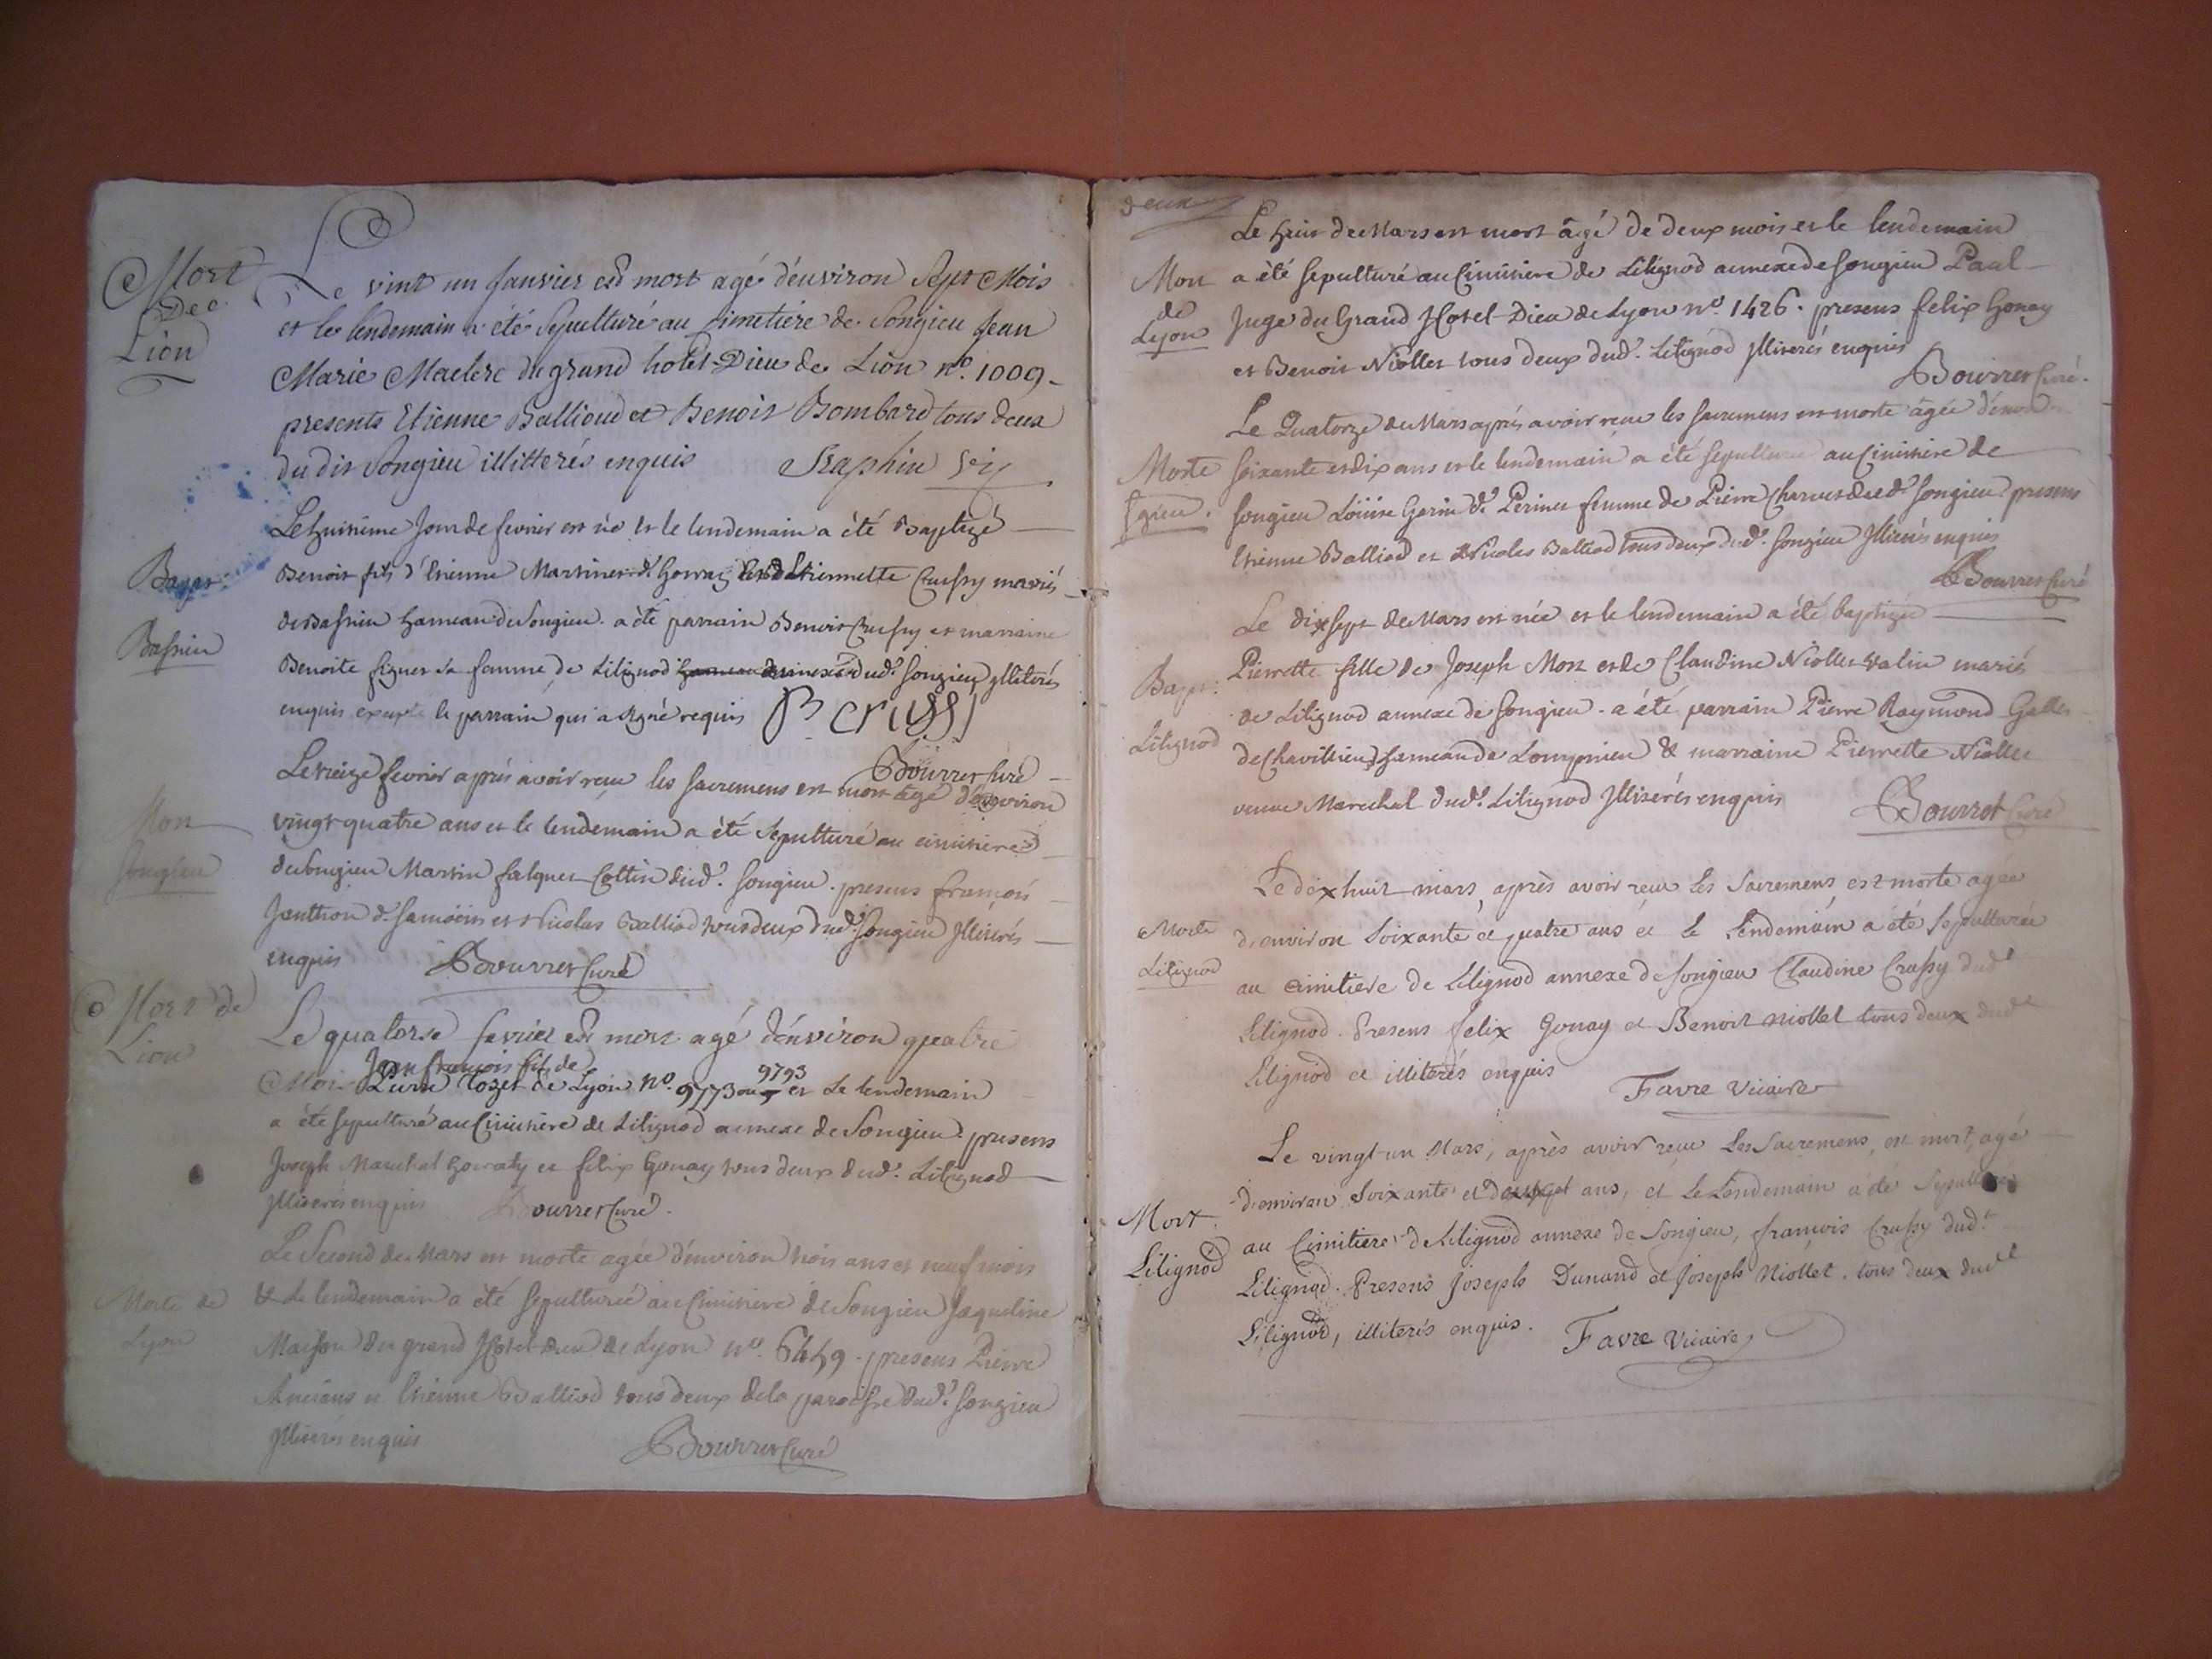 Mort
Dee
Lion
Le vint un Janvier est mort agé d'environ Sept Mois
et le lendemain a été Sepulturé au Cimetiére de Songieu Jean
Marie Maclerc du grand hotel-Dieu de Lion n.º 1009-
presents Etienne Ballioud et Benoit Bombard tous deux
du dit Songieu illitterés enquis Seraphin
Bapt.
Bassieu
Le huitième Jour de fevrier est né et le lendemain a été Baptizé
Benoit fils d'Etienne Martinet d. Etiennette Crussy mariés
de Bassieu hameau de Songieu. a été parrain Benoit Crussy et marraine
Benoite sa femme de Litignod annexe dud.t Songieu Illiterés
enquis excepté le parrain qui a signé requis B crussi
Bourret Curé
Mort
Songieu
Le treize fevrier après avoir reçu les sacremens est mort agé d'environ
vingt quatre ans et le lendemain a été Sepulturé au cimitiere
de Songieu Martin falquet Cottin dud.t Songieu. presens françois
Janthon d. Samoëns et Nicolas Balliod tous deux dud.t Songieu Illiterés
enquis Bourret Curé
Mort de
Lion
Le quatorse fevrier est mort agé d'environ quatre
Jean françois fils de
Mois Pierre Tozet de Lyon n.º 9773 ou 9793 et le lendemain
a été sepulturé au Cimitiere de Litignod annexe de Songieu. presens
Joseph Marechal et felix Gonay tous deux dud.t Litignod
Illiterés enquis Bourret Curé.
Morte de
Lyon
Le Second de Mars est morte agée d'environ trois ans et neuf mois
& Le lendemain a été sepulturée au Cimitiere de Songieu Jaqueline
Maison du grand Hotel-dieu de Lyon n.º 6449. presens Pierre
Ancians et Etienne Balliod tous deux de la paroisse dud.t Songieu
Illiterés enquis Bourret Curé
deux
Mort
de
Lyon
Le huit de Mars est mort âgé de deux mois et le lendemain
a été sepulturé au Cimitiere de Litignod annexe de Songieu Paul
Juge du Grand Hotel-Dieu de Lyon n.º 1426. presens felix Gonay
et Benoit Niollet tous deux dud.t Litignod Illiterés enquis
Bourret Curé.
Morte
Sgieu.
Le Quatorze de Mars après avoir reçu les sacremens est morte âgée d'environ
soixante et dix ans et le lendemain a été sepulturée au Cimitiere de
Songieu Loüise Gerin d.t Perinet femme de Pierre Charvet dud.t Songieu. presens
Etienne Balliod et Nicolas Balliod tous deux dud.t Songieu Illiterés enquis
Bourret Curé
Bapt.
Litignod
Le dixsept de Mars est née et le lendemain a été baptizée
Pierrette fille de Joseph Mort et de Claudine Niollet Valin mariés
de Litignod annexe de Songieu. a été parrain Pierre Raymond Gallet
de Chavillieu hameau de Lompnieu & marraine Pierrette Niollet
veuve Marechal dud.t Litignod Illiterés enquis Bourret Curé
Morte
Litignod
Le dix huit mars, après avoir reçu les Sacremens est morte agée
d'environ Soixante et quatre ans et le lendemain a été Sepulturée
au Cimitiere de Litignod annexe de Songieu Claudine Crussy dud.t
Litignod. Presens felix Gonay et Benoit Niollet tous deux dud.t
Litignod et illiterés enquis
Favre Vicaire
Mort
Litignod
Le vingt-un Mars, après avoir reçu Les Sacremens, est mort, agé
d'environ Soixante et ans, et le lendemain a été Sepulturé
au Cimitiere de Litignod annexe de Songieu, françois Crussy dud.t
Litignod. Presens Joseph Dunand et Joseph Niollet, tous deux dud.t
Litignod, illiterés enquis. Favre Vicaire